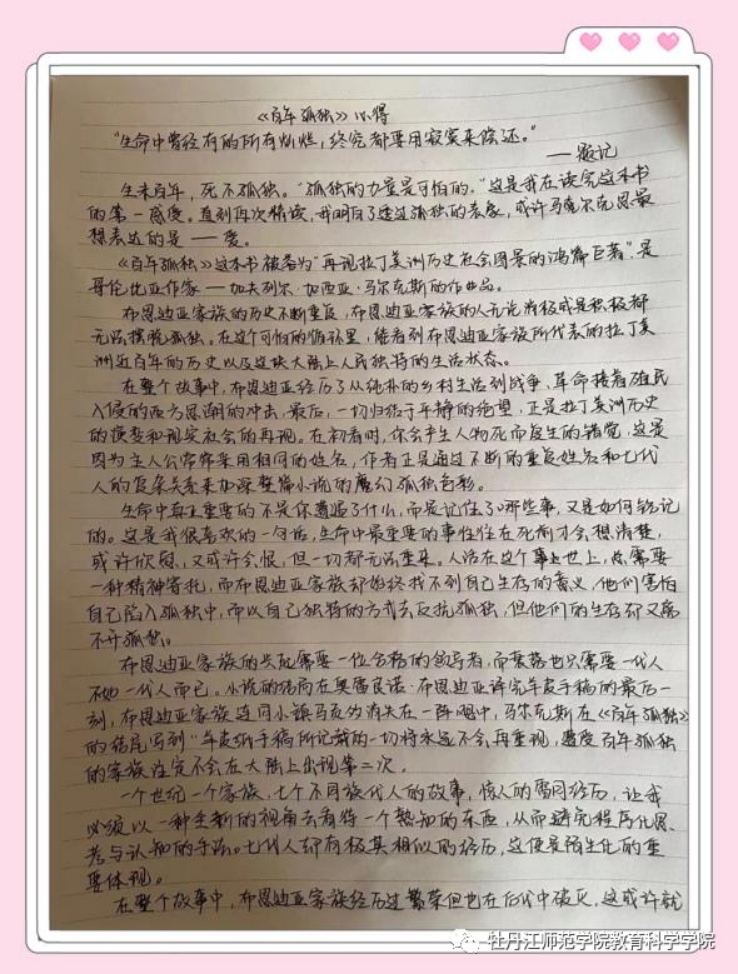 《百年孤独》心得
“生命中曾经有的所有灿烂，终究都要用寂寞来偿还。”
——题记
生来百年，死不孤独。“孤独的力量是可怕的。”这是我在读完这本书
的第一感受。直到再次精读，我明白了透过孤独的表象，或许马克尔克思最
想表达的是——爱。
《百年孤独》这本书被誉为“再现拉丁美洲历史社会图景的鸿篇巨著”，是
哥伦比亚作家——加夫列尔·加西亚·马尔克斯的作品。
布恩迪亚家族的历史不断重复，布恩迪亚家族的人无论消极或是积极都
无法摆脱孤独。在这个可怕的循环里，能看到布恩迪亚家族所代表的拉丁美
洲近百年的历史以及这块大陆上人民独特的生活状态。
在整个故事中，布恩迪亚经历了从纯朴的乡村生活到战争、革命接着殖民
入侵的西方思潮的冲击，最后，一切归结于平静的绝望，正是拉丁美洲历史
的演变和现实社会的再现。在初看时，你会产生人物死而复生的错觉，这是
因为主人公常常采用相同的姓名，作者正是通过不断的重复姓名和七代
人的复杂关系来加深整篇小说的魔幻孤独色彩。
生命中真正重要的不是你遭遇了什么，而是记住了哪些事，又是如何铭记
的。这是我很喜欢的一句话，生命中最重要的事往往在死前才会想清楚，
或许欣慰，又或许会恨，但一切都无法重来。人活在这个事世上，总需要
一种精神寄托，而布恩迪亚家族却始终找不到自己生存的意义，他们害怕
自己陷入孤独中，而以自己独特的方式去反抗孤独，但他们的生存却又离
不开孤独。
布恩迪亚家族的兴起需要一位合格的领导者，而衰落也只需要一代人
不如一代人而已。小说的结局在奥雷良诺·布恩迪亚译完羊皮手稿的最后一
刻，布恩迪亚家族连同小镇马贡多消失在一阵飓中，马尔克斯在《百年孤独》
的结尾写到“羊皮纸手稿所记载的一切将永远不会再重现，遭受百年孤独
的家族注定不会在大陆上出现第二次。
一个世纪一个家族，七个不同族代人的故事，惊人的雷同经历，让我
必须以一种全新的视角去看待一个熟知的东西，从而避免程序化思
考与认知的手法。七代人都有极其相似的经历，这便是陌生化的重
要体现。
在整个故事中，布恩迪亚家族经历过繁荣但也在后代中破灭，这或许就
牡丹江师范学院教育科学学院